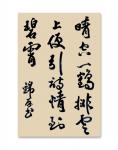 晴空一鶴排雲
上便引詩情到
碧霄